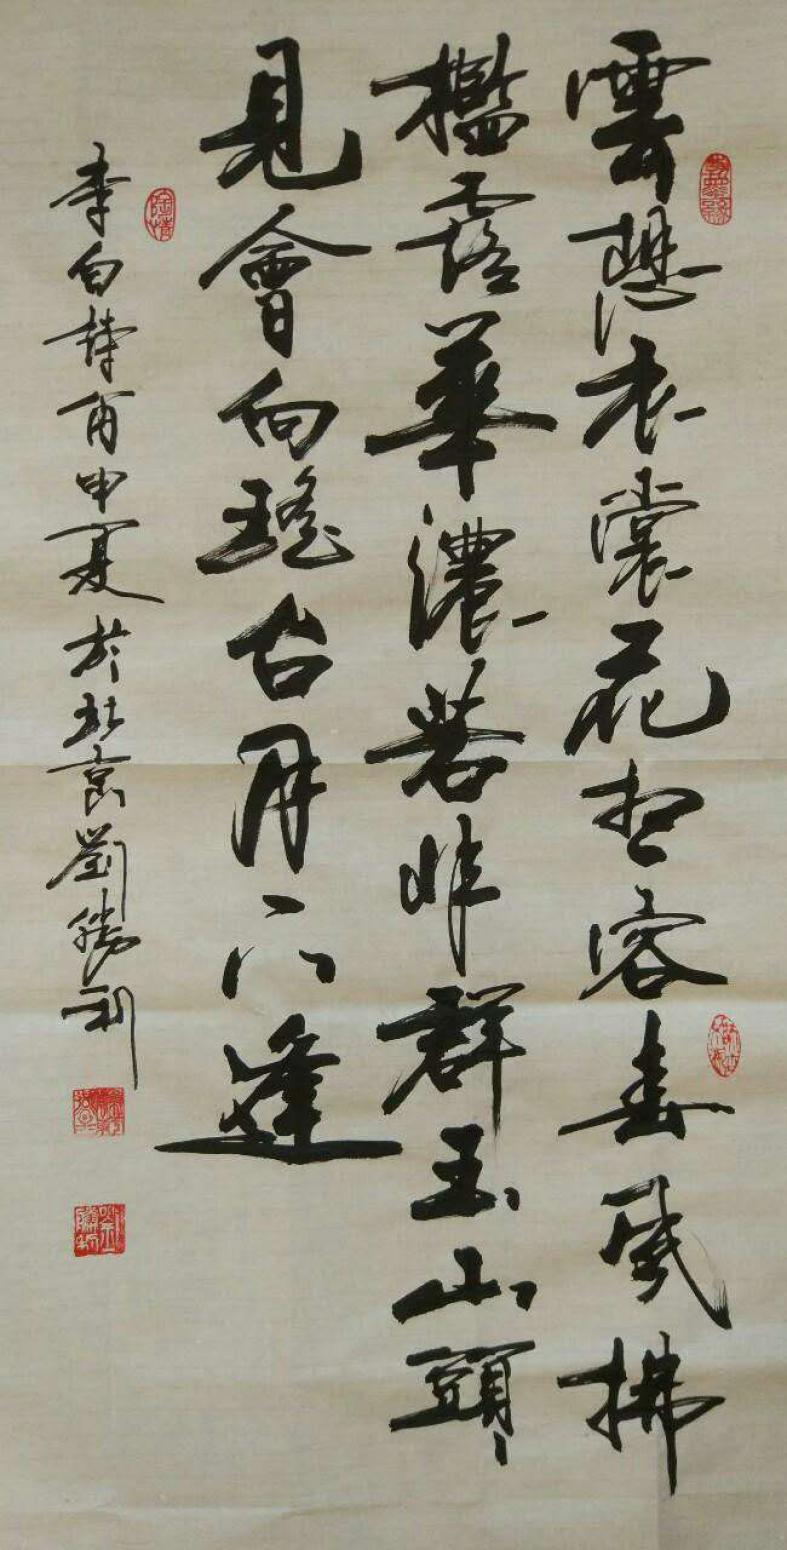 雲想衣裳花想容春風拂
檻露華濃若非群玉山頭
見會向瑤台月下逢
李白詩丙申夏於北京劉勝利
陶情